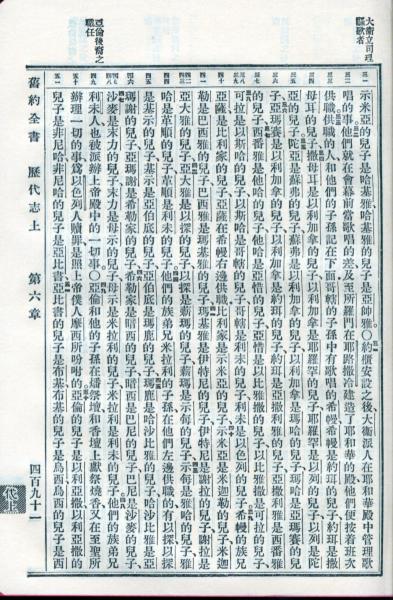 大衛立司理
謳歌者
示米亞的兒子是哈基雅哈基雅的兒子是亞帥雅〇約櫃安設之後大衛派人在耶和華殿中管理歌
唱的事他們就在會幕前當歌唱的差及至所羅門在耶路撒冷建造了耶和華的殿他們便按着班次
供職供職的人和他們的子孫記在下面哥轄的子孫中有歌唱的希幔希幔是約珥的兒子約珥是撒
母耳的兒子撒母耳是以利加拿的兒子以利加拿是耶羅罕的兒子耶羅罕是以列的兒子以列是陀
亞的兒子陀亞是蘇弗的兒子蘇弗是以利加拿的兒子以利加拿是瑪哈的兒子瑪哈是亞瑪賽的兒
子亞瑪賽是以利加拿的兒子以利加拿是約珥的兒子約珥是亞撒利雅的兒子亞撒利雅是西番雅
的兒子西番雅是他哈的兒子他哈是亞惜的兒子亞惜是以比雅撒的兒子以比雅撒是可拉的兒子
可拉是以斯哈的兒子以斯哈是哥轄的兒子哥轄是利未的兒子利未是以色列的兒子希幔的族兄
亞薩是比利家的兒子亞薩在希幔右邊供職比利家是示米亞的兒子示米亞是米迦勒的兒子米迦
勒是巴西雅的兒子巴西雅是瑪基雅的兒子瑪基雅是伊特尼的兒子伊特尼是謝拉的兒子謝拉是
亞大雅的兒子亞大雅是以探的兒子以探是薪瑪的兒子薪瑪是示每的兒子示每是雅哈的兒子雅
哈是革順的兒子革順是利未的兒子他們的族弟兄米拉利的子孫在他們左邊供職的有以探以探
是基示的兒子基示是亞伯底的兒子亞伯底是瑪鹿的兒子瑪鹿是哈沙比雅的兒子哈沙比雅是亞
瑪謝的兒子亞瑪謝是希勒家的兒子希勒家是暗西的兒子暗西是巴尼的兒子巴尼是沙麥的兒子
沙麥是末力的兒子末力是母示的兒子母示是米拉利的兒子米拉利是利未的兒子他們的族弟兄
亞倫後裔之
職任
利未人也被派辦上帝殿中的一切事〇亞倫和他的子孫在燔祭壇和香壇上獻祭燒香又在至聖所
辦理一切的事爲以色列人贖罪是照上帝僕人摩西所吩咐的亞倫的兒子是以利亞撒以利亞撒的
兒子是非尼哈非尼哈的兒子是亞比書亞比書的兒子是布基布基的兒子是烏西烏西的兒子是西
舊約全書 歷代志上 第六章 四百九十一
代上